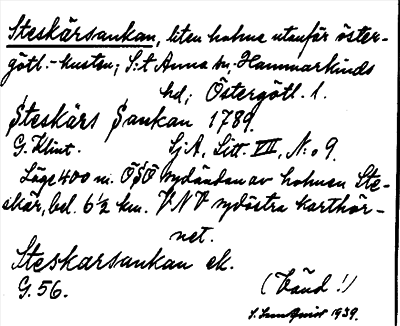 Steskärsankan, liten holme utanför öster-
götl.-kusten, S:t Anna sn, Hammarkinds
hd, Östergötl. l.
Steskärs Sankan 1789.
G. Klint. Sj.A., Litt. VII, N:o 9.
Läge 400 m. OSO sydändan av holmen Ste-
skär, bel. 6 1/2 km. VNV sydöstra karthör-
net.
Steskarsankan ek.
G. 56. (Vänd!)
1939.